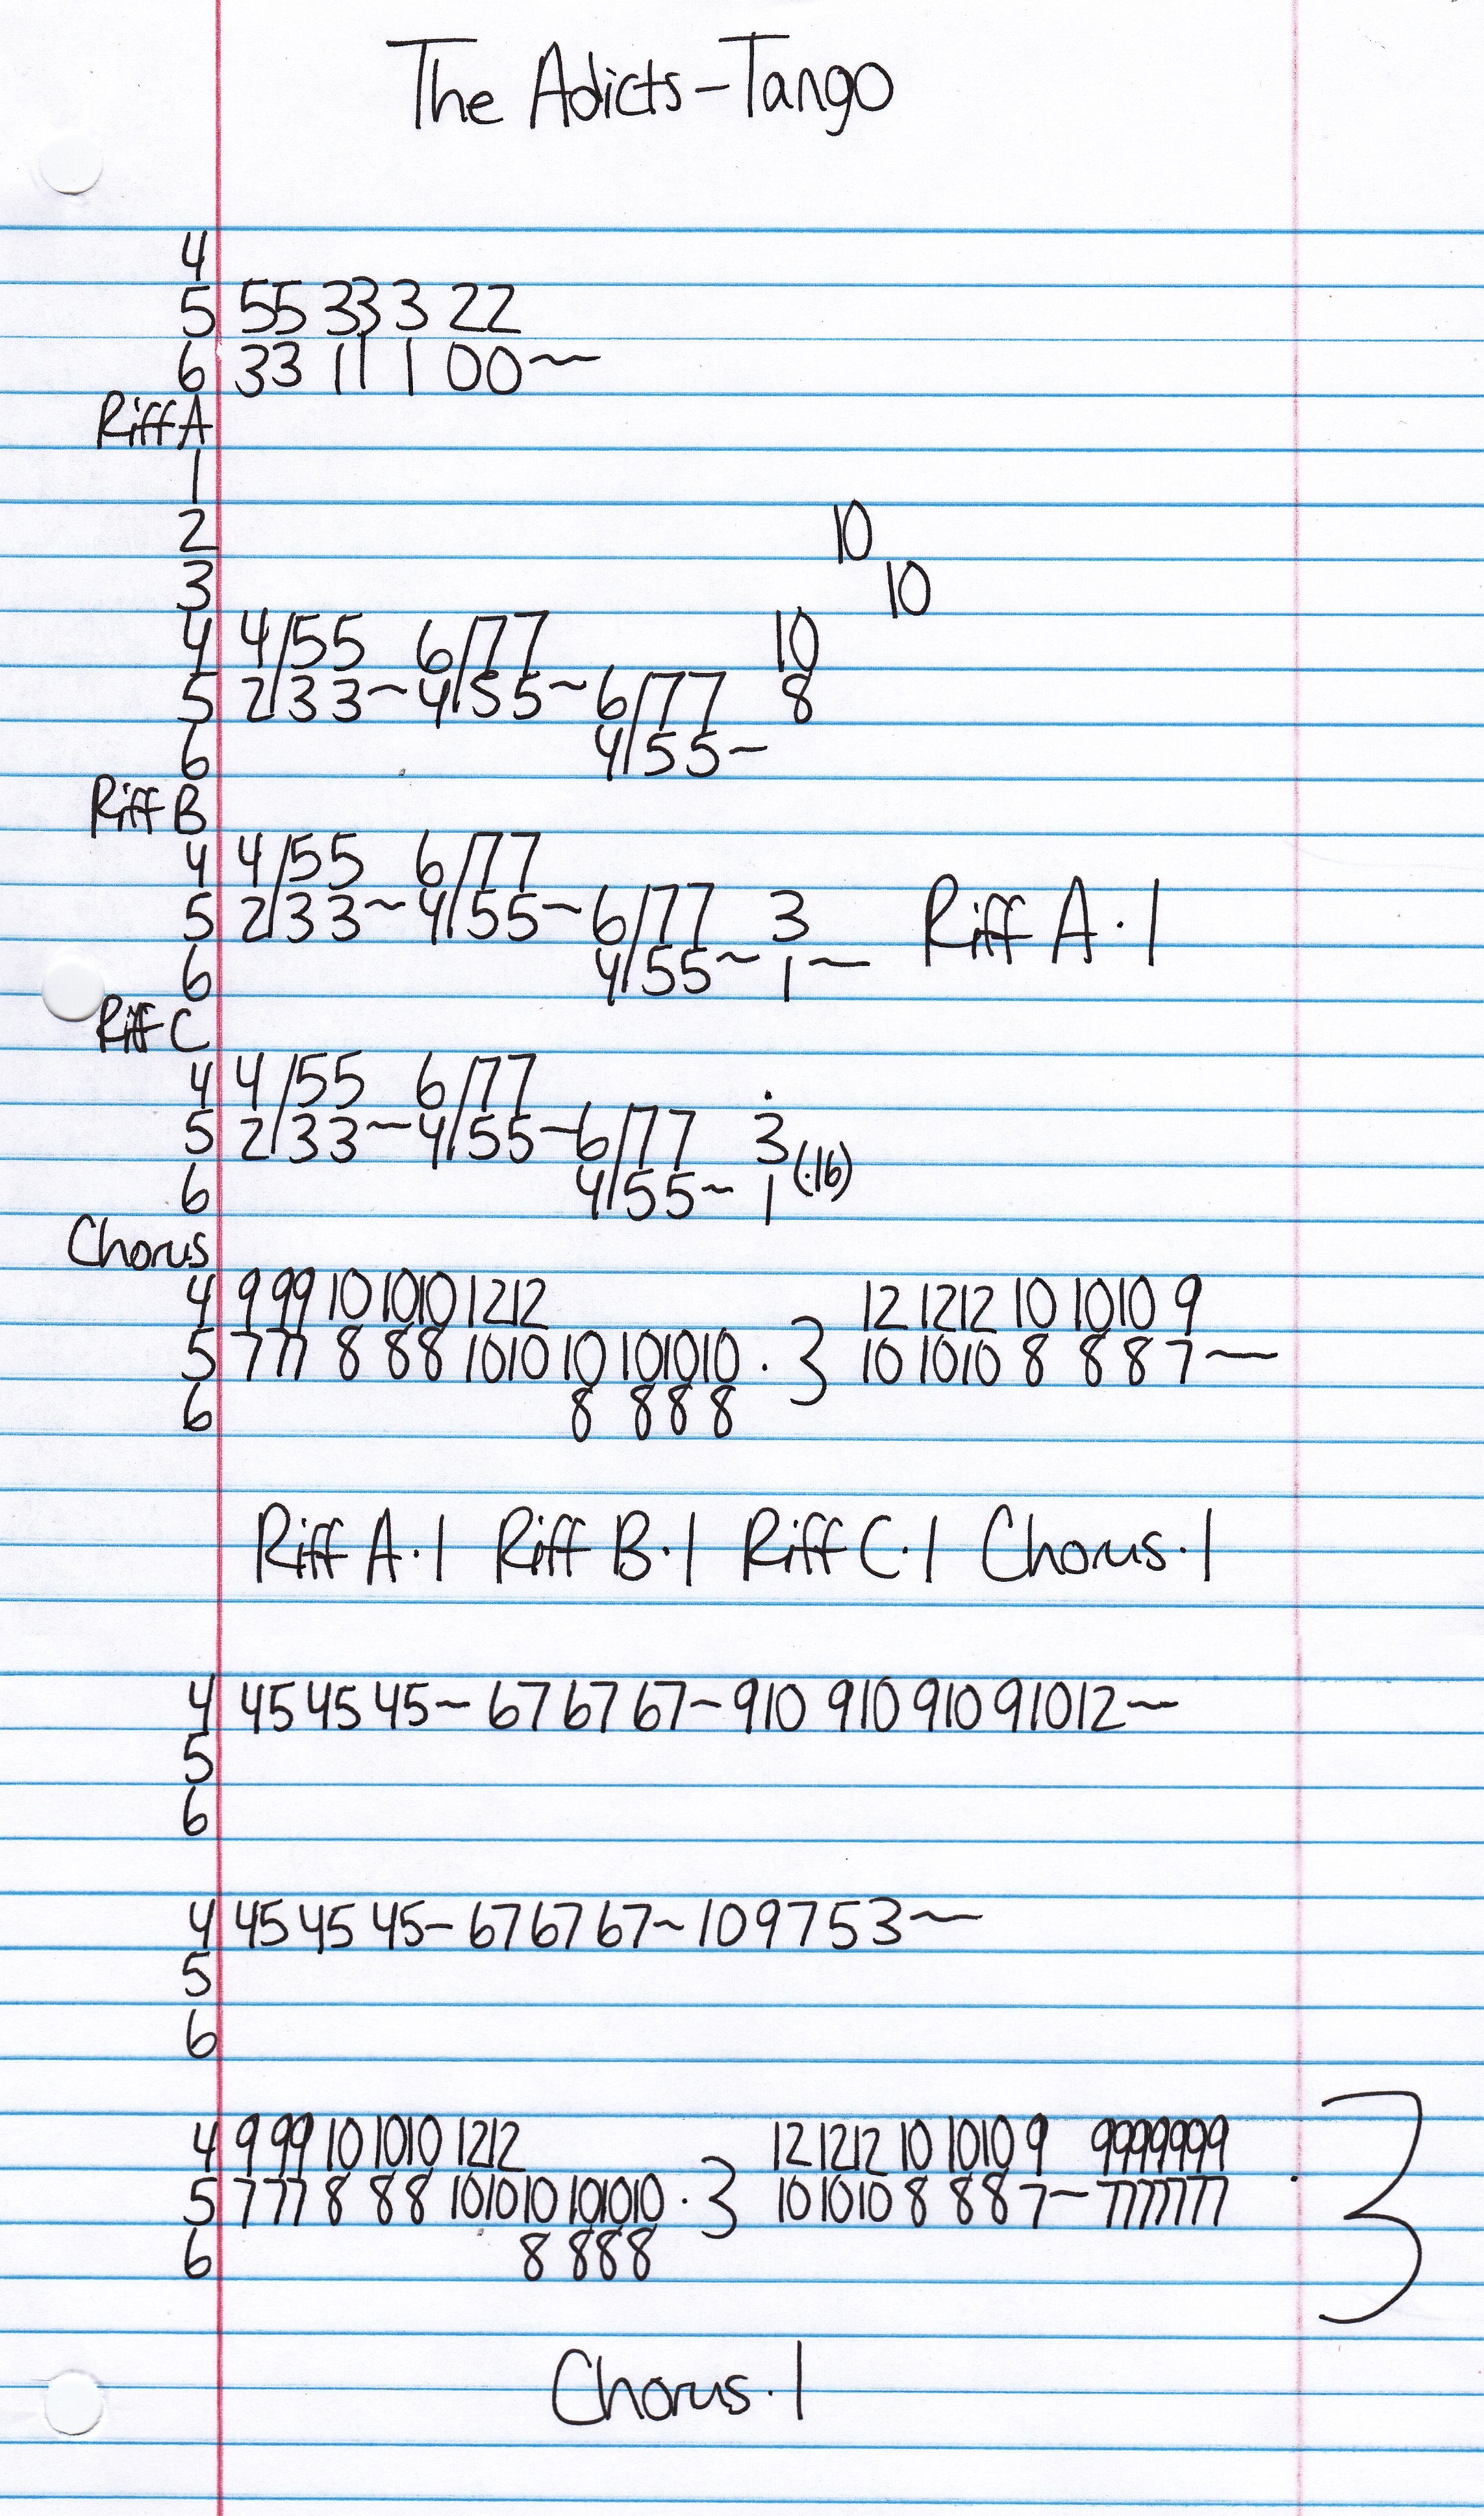 The Adicts-Tango
4
5 55 33 3 22
6 33 11 1 00~
Riff A
1
2 10
3 10
4 4/55 6/77 10
5 2/33~4/55~6/77 8
6 4/55~
Riff B
4 4/55 6/77
5 2/33~4/55~6/77 3 Riff A·1
6 4/55~1~
Riff C
4 4/55 6/77
5 2/33~4/55~6/77 3
6 4/55~1(·16)
Chorus
4 9 99 10 1010 1212 12 1212 10 1010 9
5 7 77 8 88 1010 10 101010 ·3 10 1010 8 88 7~
6 8 888
Riff A·1 Riff B·1 Riff C·1 Chorus·1
4 45 45 45~67 67 67~910 910 910 91012~
5
6
4 45 45 45~67 67 67~109753~
5
6
4 9 99 10 1010 1212 12 1212 10 1010 9 9999999
5 7 77 8 88 1010 10 101010 ·3 10 1010 8 88 7~7777777 ·3
6 8 888
Chorus·1